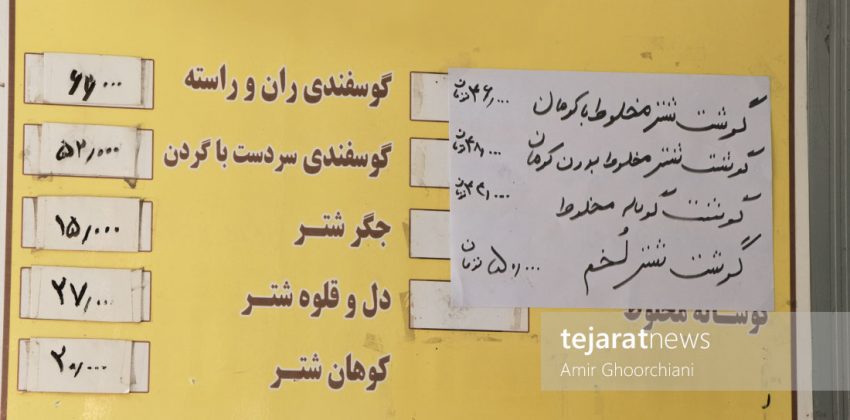 گوشت شتر مخلوط با کوهان ۴۶٫۰۰۰ تومان
گوشت شتر مخلوط بدون کوهان ۴۸٫۰۰۰ تومان
گوشت گوساله مخلوط ۴۲٫۰۰۰ تومان
گوشت شتر لُخم ۵۰٫۰۰۰ تومان
گوساله مخلوط
گوسفندی ران و راسته ۶۶٫۰۰۰
گوسفندی سردست با گردن ۵۲٫۰۰۰
جگر شتر ۱۵٫۰۰۰
دل و قلوه شتر ۲۷٫۰۰۰
کوهان شتر ۲۰٫۰۰۰
tejaratnews
Amir Ghoorchiani